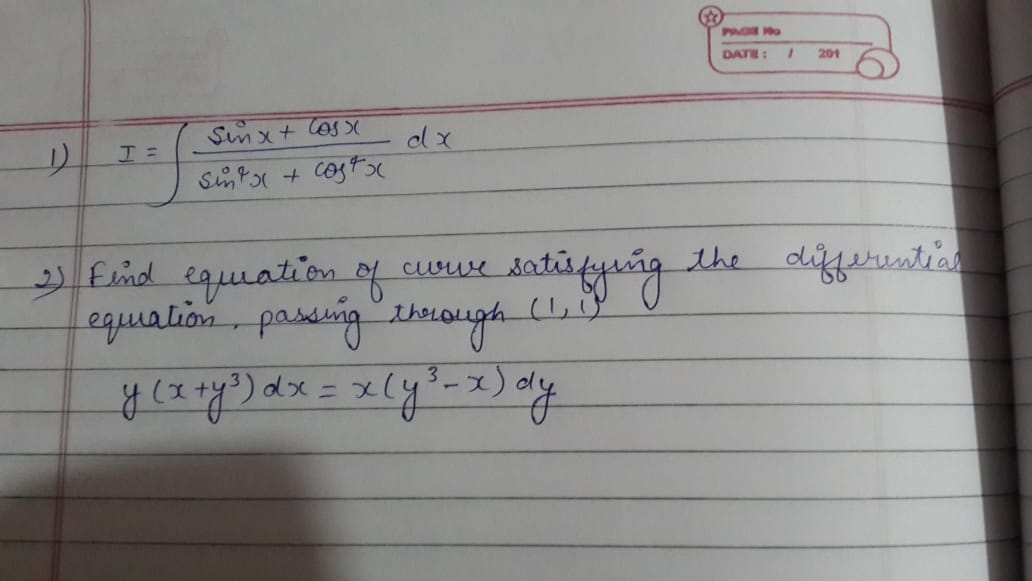 PAGE No
DATE: / 201
1) I = ∫ (sin x + cos x) / (sin⁴x + cos⁴x) dx
2) Find equation of curve satisfying the differential
equation, passing through (1,1)
y(x+y³)dx = x(y³-x)dy